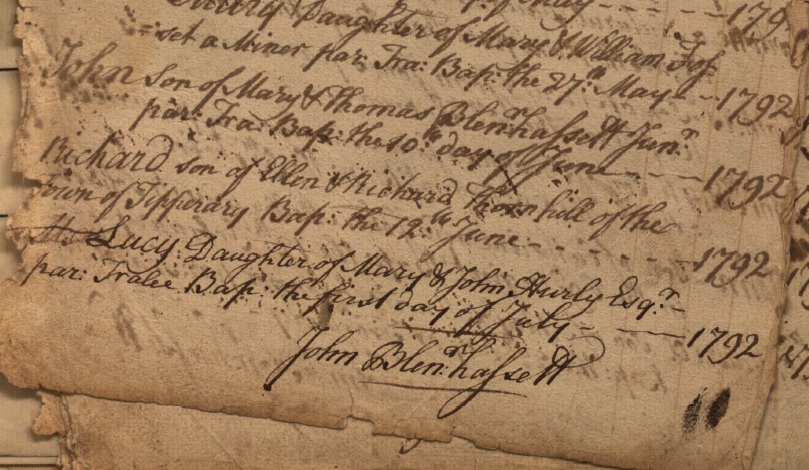 Daughter of Mary & William Fos=
=set a Miner par: Tra: Bap: the 27.th May - - 1792
John son of Mary & Thomas Blenr.hassett Junr.
par: Tra: Bap: the 10.th day of June - - - - 1792
Richard son of Ellen & Richard Thornhill of the
Town of Tipperary Bap: the 12.th June - - - - - - 1792
Lucy Daughter of Mary & John Hurly Esqr. -
par: Tralee Bap: the first day of July - - 1792
John Blenr.hassett